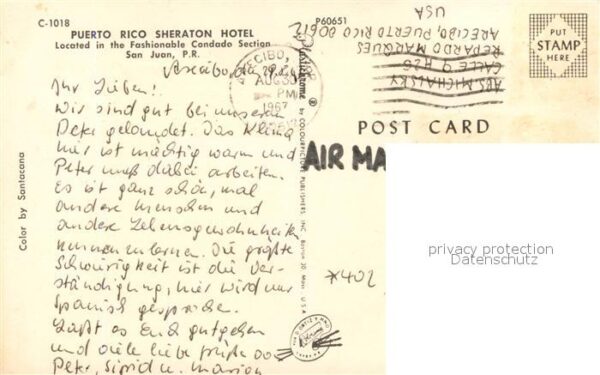 C-1018
PUERTO RICO SHERATON HOTEL
Located in the Fashionable Condado Section
San Juan, P.R.
P60651
Arecibo, den 29.8.
Ihr Lieben!
Wir sind gut bei unserem
Peter gelandet. Das Klima
hier ist mächtig warm und
Peter muß dabei arbeiten.
Es ist ganz schön, mal
andere Menschen und
andere Lebensgewohnheiten
kennenzulernen. Die größte
Schwierigkeit ist die Ver-
ständigung, hier wird nur
Spanisch gesprochen.
Laßt es Euch gutgehen
und viele liebe Grüße von
Peter, Sigrid u. Marion
Color by Santacana
ARECIBO,
AUG 30
PM
1967
Plastichrome ® by COLOURPICTURE PUBLISHERS, INC. Boston 30, Mass. U.S.A.
ABS. MICHALSKY
CALLE 9 H26
REPARDO MARQUES
ARECIBO, PUERTO RICO 00612
USA
PUT
STAMP
HERE
POST CARD
AIR MA
*402
privacy protection
Datenschutz